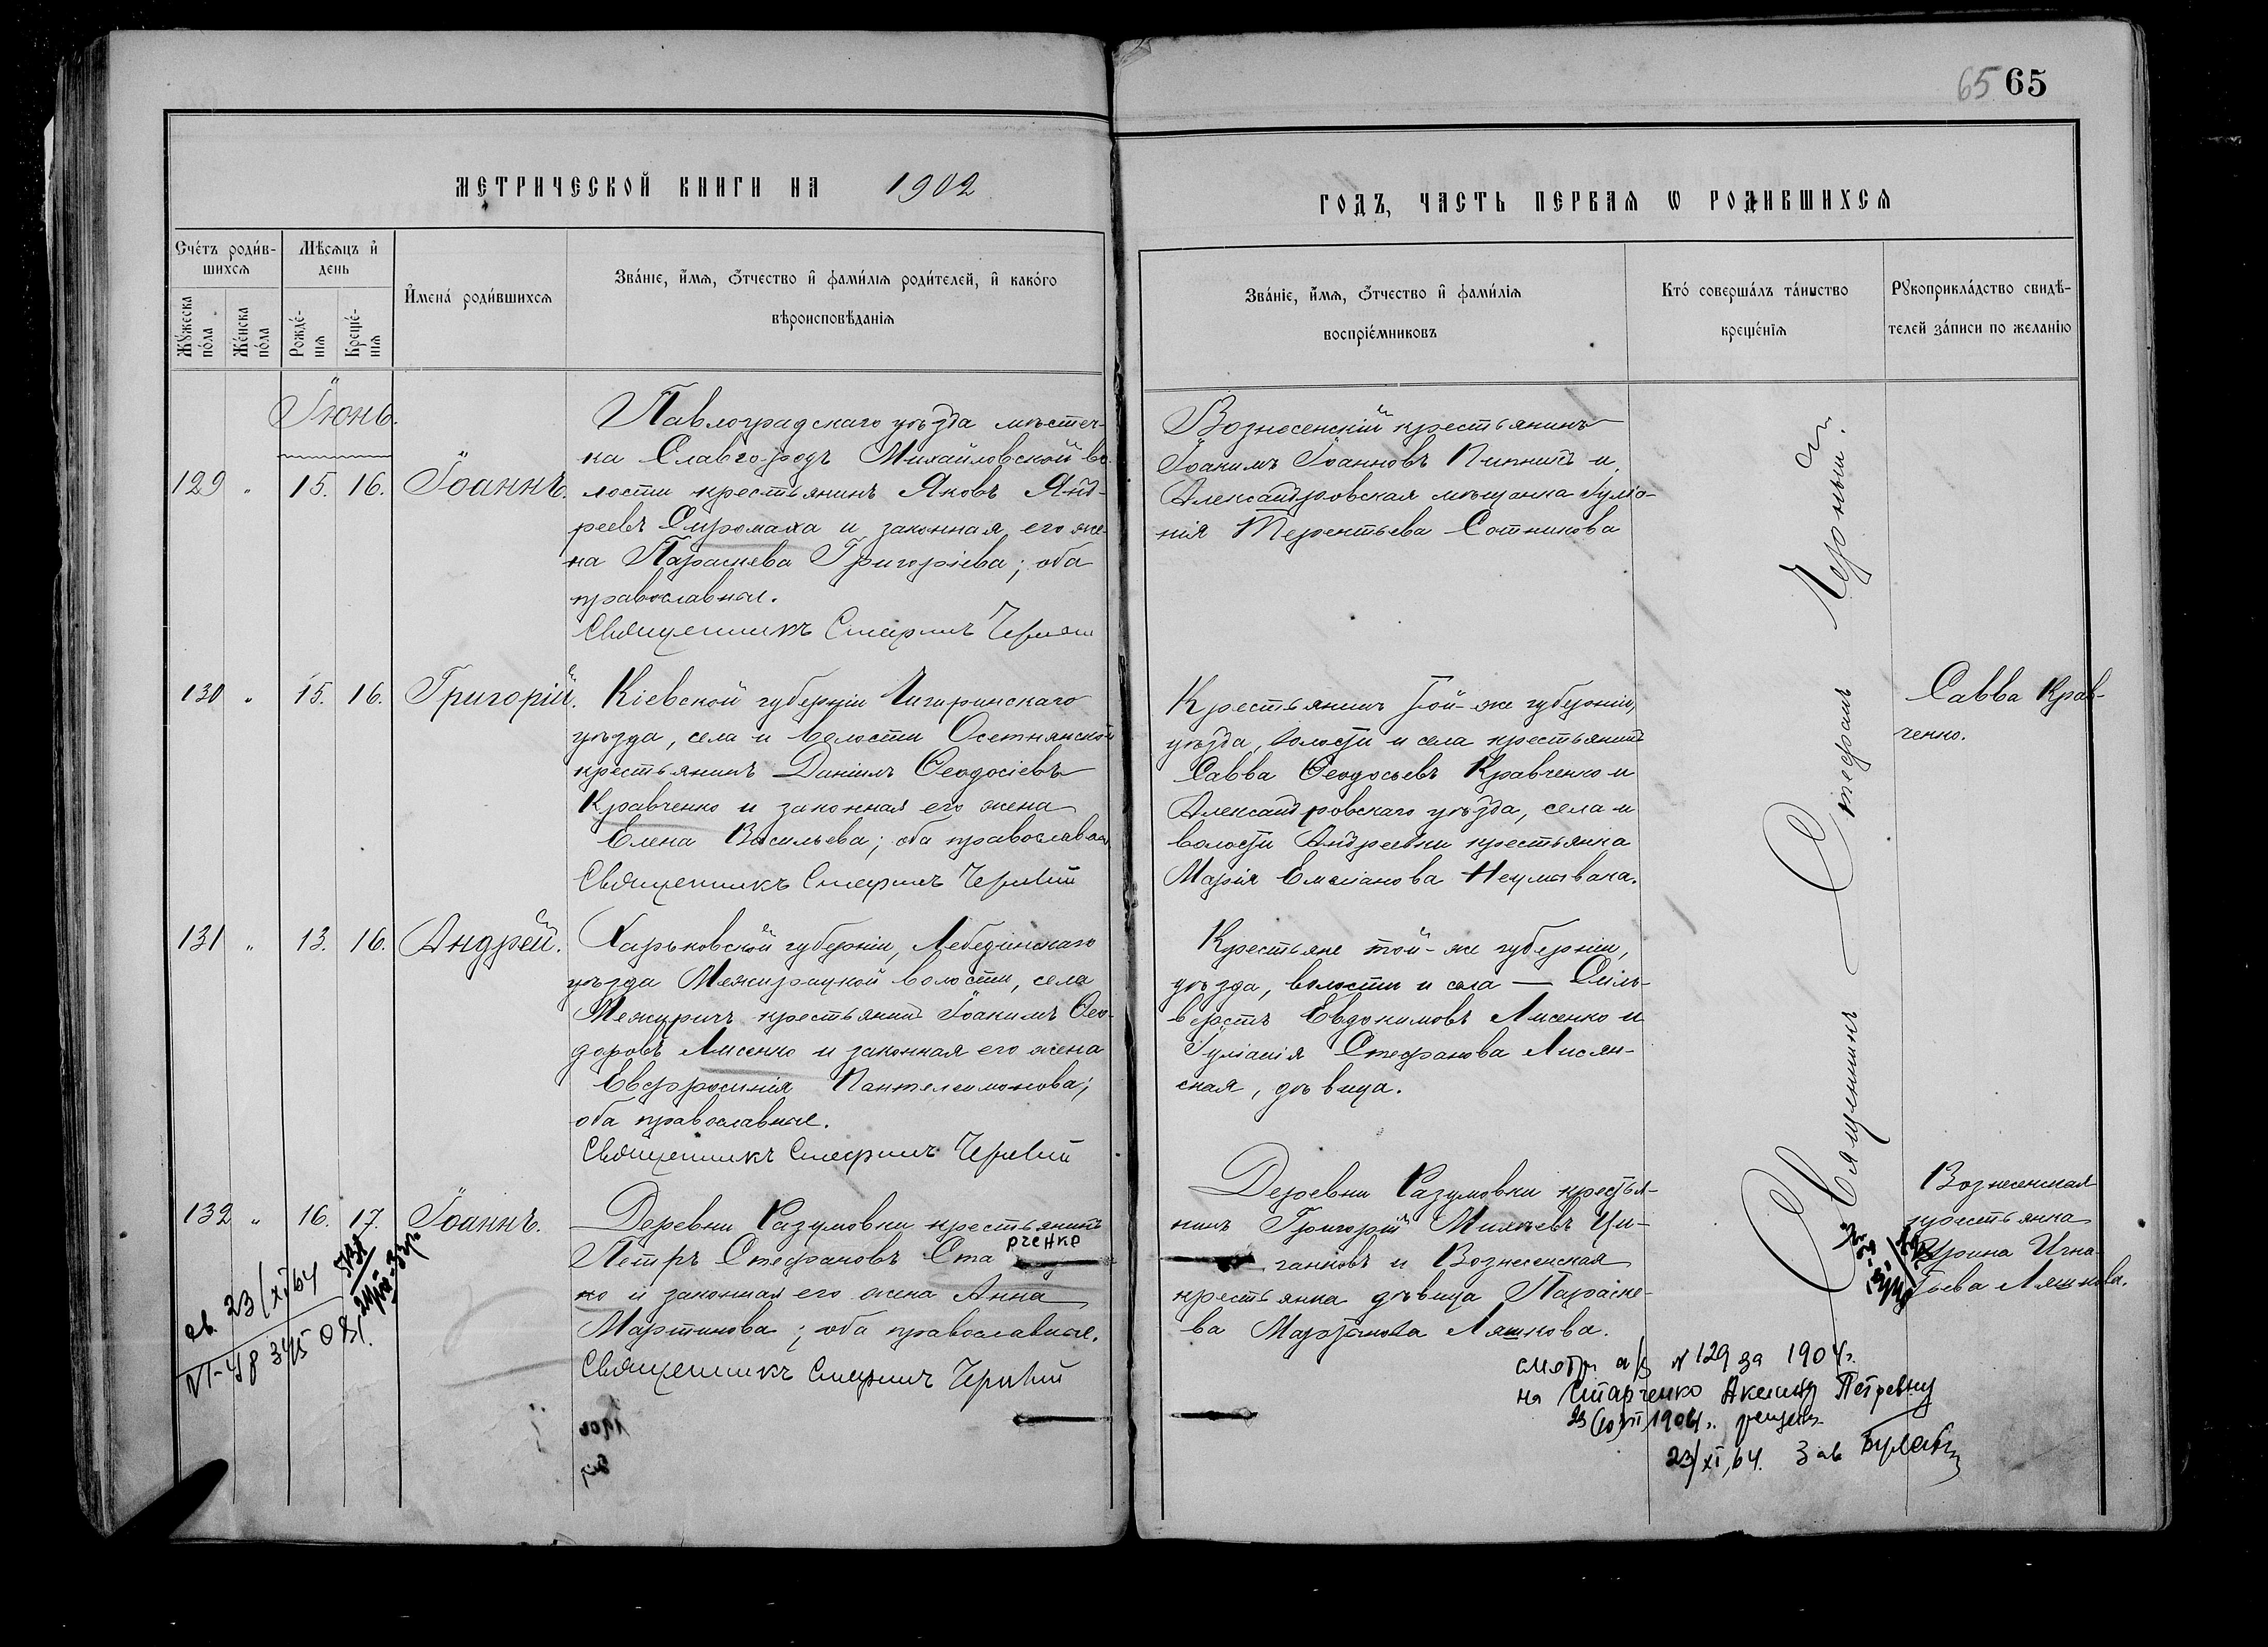 65 65
МЕТРИЧЕСКОЙ КНИГИ НА 1902
ГОДЪ, ЧАСТЬ ПЕРВАЯ Ѡ РОДИВШИХСЯ
Счетъ родив-
шихся
Мужеска
пола
Женска
пола
Мѣсяцъ и
день
Рожде-
нія
Креще-
нія
Имена родившихся
Званіе, имя, отчество и фамилія родителей, и какого
вѣроисповѣданія
Званіе, имя, отчество и фамилія
воспріемниковъ
Кто совершалъ таинство
крещенія
Рукоприкладство свидѣ-
телей записи по желанію
Іюнь.
129 " 15. 16. Іоаннъ.
Павлоградскаго уѣзда мѣстеч-
ка Славгородъ Михайловской во-
лости крестьянинъ Яковъ Анд-
реевъ Сиромаха и законная его же-
на Параскева Григоріева; оба
православные.
Священникъ Стефанъ
Вознесенскій крестьянинъ
Іоакимъ Іоанновъ и
Александровская мѣщанка Іуліа-
нія Терентьева Сотникова
130 " 15. 16. Григорій.
Кіевской губерніи Чигиринскаго
уѣзда, села и волости Осетнянской
крестьянинъ Даніилъ Ѳеодосіевъ
Кравченко и законная его жена
Елена Васильева; оба православные
Священникъ Стефанъ
Крестьянинъ той-же губерніи,
уѣзда, волости и села крестьянинъ
Савва Ѳеодосьевъ Кравченко и
Александровскаго уѣзда, села и
волости Андреевки крестьянка
Марія Емеліанова Неумывака.
Савва Крав-
ченко.
131 " 13. 16. Андрей.
Харьковской губерніи, Лебединскаго
уѣзда Межирицкой волости, села
Межиричъ крестьянинъ Іоакимъ Ѳео-
доровъ Лисенко и законная его жена
Евфросинія Пантелеимонова;
оба православные.
Священникъ Стефанъ
Крестьяне той-же губерніи,
уѣзда, волости и села — Силь-
верстъ Евдокимовъ Лисенко и
Іуліанія Стефанова Лисян-
ская, дѣвица.
132 " 16. 17. Іоаннъ.
Деревни Разумовки крестьянинъ
Петръ Стефановъ Старченко
ко и законная его жена Анна
Мартинова; оба православные.
Священникъ Стефанъ
Деревни Разумовки крестья-
нинъ Григорій Михѣевъ Ци-
ганковъ и Вознесенская
крестьянка дѣвица Параске-
ва Мартинова Ляшкова.
Вознесенская
крестьянка
Ирина Игна-
тьева Ляшкова.
Священникъ Стефанъ
23/XI 64
VI-ЯР 345081
смотри а/з № 129 за 1904г.
на Старченко Акелину Петровну
23/XI, 64. Зав